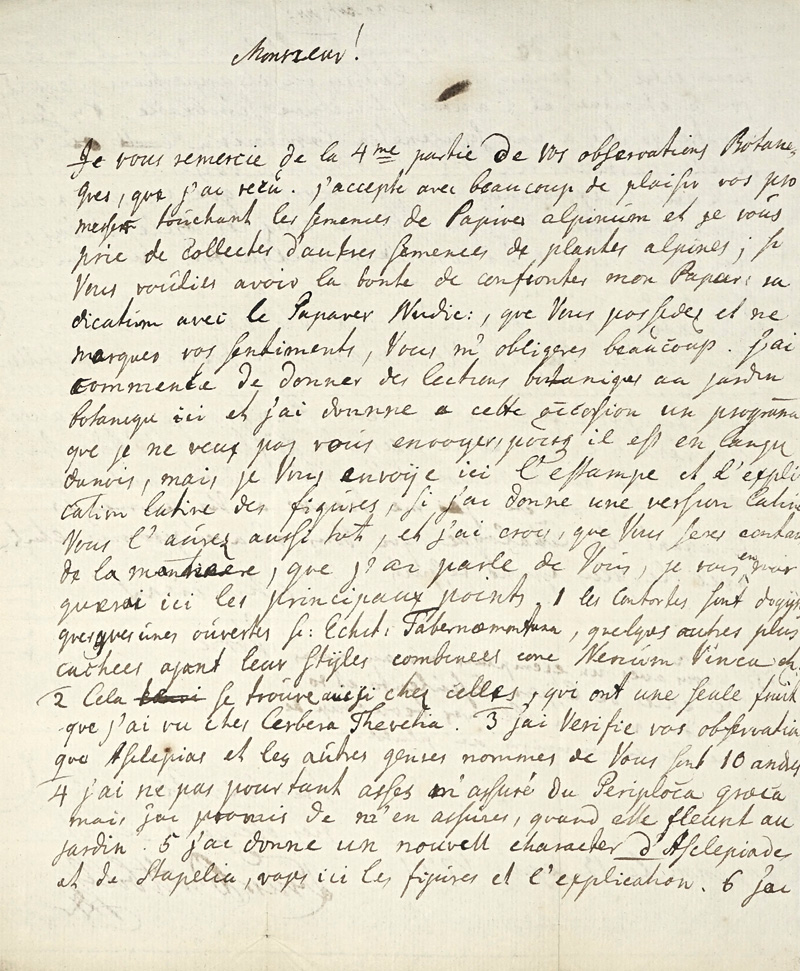 Monsieur!
Je vous remercie de la 4me partie de vos observations Botani-
ques, que j'ai reçu. j'accepte avec beaucoup de plaisir vos pro
messes touchant les semences de Papiver alpinum et je vous
prie de collectes d'autres semences de plantes alpines; si
Vous voulies avoir la bonte de confrontes mon Papaver ra
dicatum avec le Papaver Nudic:, que Vous possedez et me
marques vos sentiments, Vous m'obligeres beaucoup. J'ai
commence de donner des lections botaniques au jardin
botaniqu ici et j'ai donnne a cette occasion un programa
que je ne veux pas vous envoyer, il est en langu
danois, mais je Vous envoije ici l'estampe et l'expli
cation latine des figures, si j'ai donne une version latine
Vous l'aurez aussi tot, et j'ai crois, que Vous seres contan
de la maniere, que j'ai parle de Vous, je vous en mar
querai ici les principaux points. 1 les Contortes sont digijn
quesques unes ouvertes se: Echit: Tabernæmontana, quelques autres plus
cachees ajant leur Styles combinees come Nerium Vinca
2 Cela se trouve aussi chez celles, qui ont une seule fruit
que j'ai vu ches Cerbera Thevetia. 3 j'ai Verifie vos observatio
que Asclepias et les autres genres nommes de Vous sont 10 andres
4 j'ai ne pas pourtant asses m'assuré du Periploca græca
mais j'ai promis de m'en assures, quand elle fleurit au
jardin. 5 j'ai donne un nouvell character d'Asclepiades
et de Stapelia, voyes ici les figures et l'explication. 6 j'ai